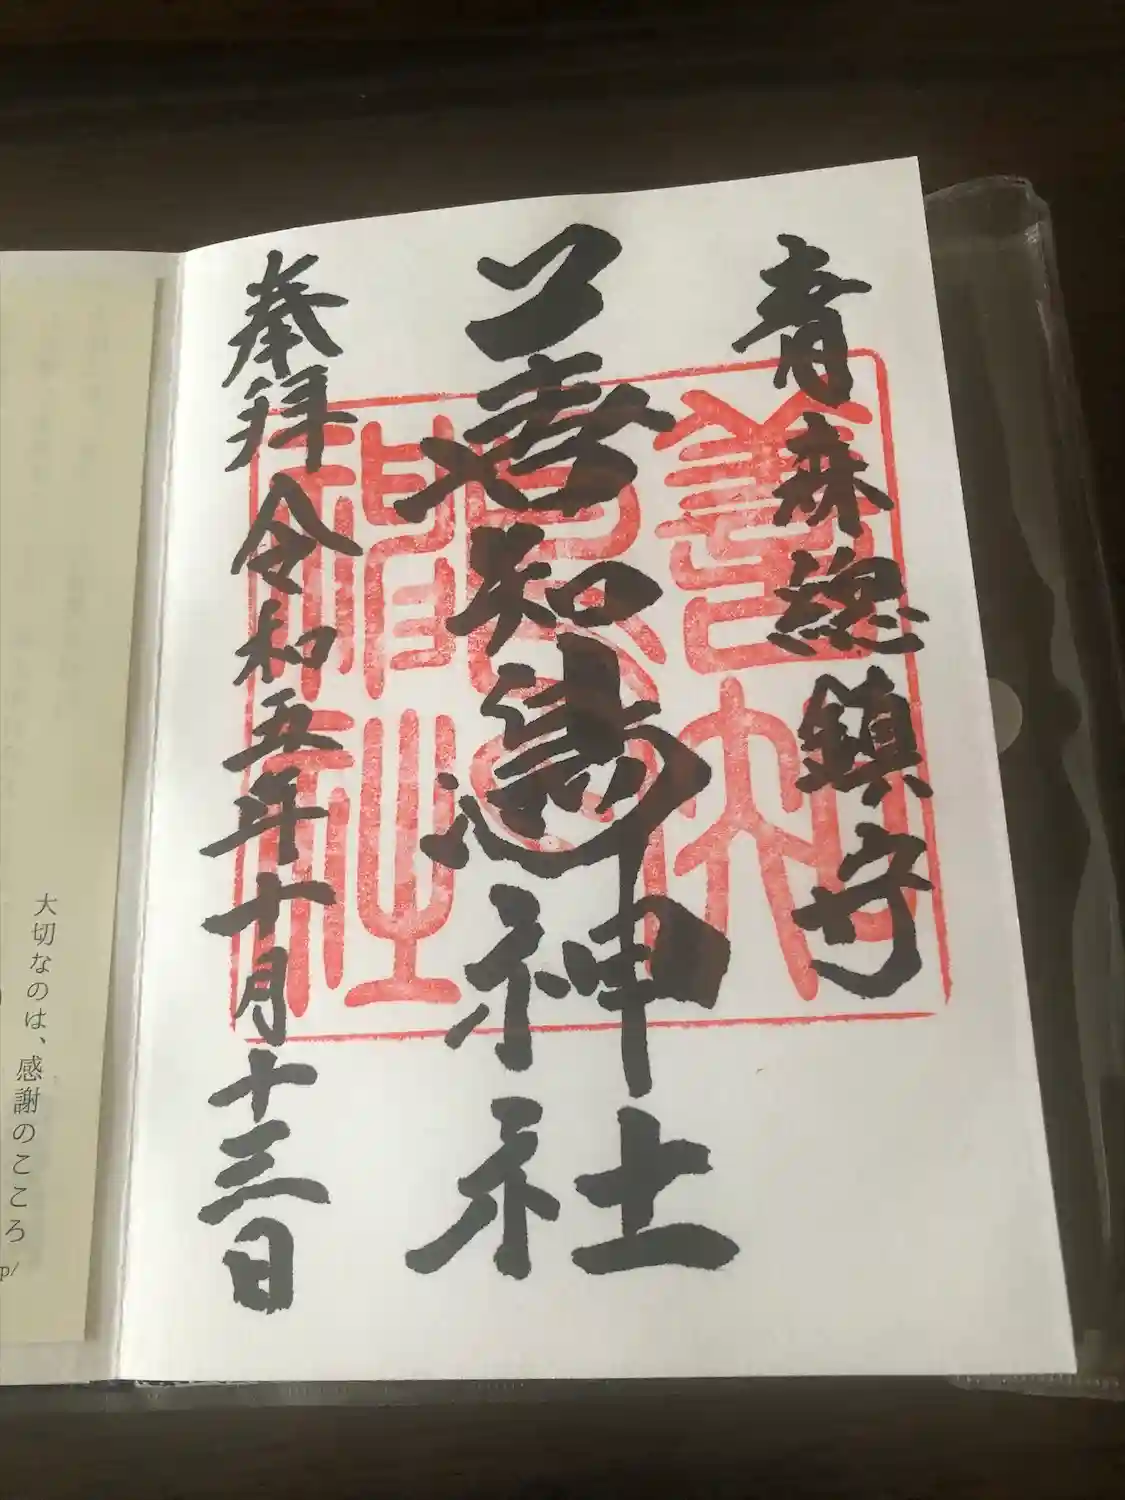 青森総鎮守
善知鳥神社
奉拝 令和五年十月十三日
大切なのは、感謝のこころ
p/